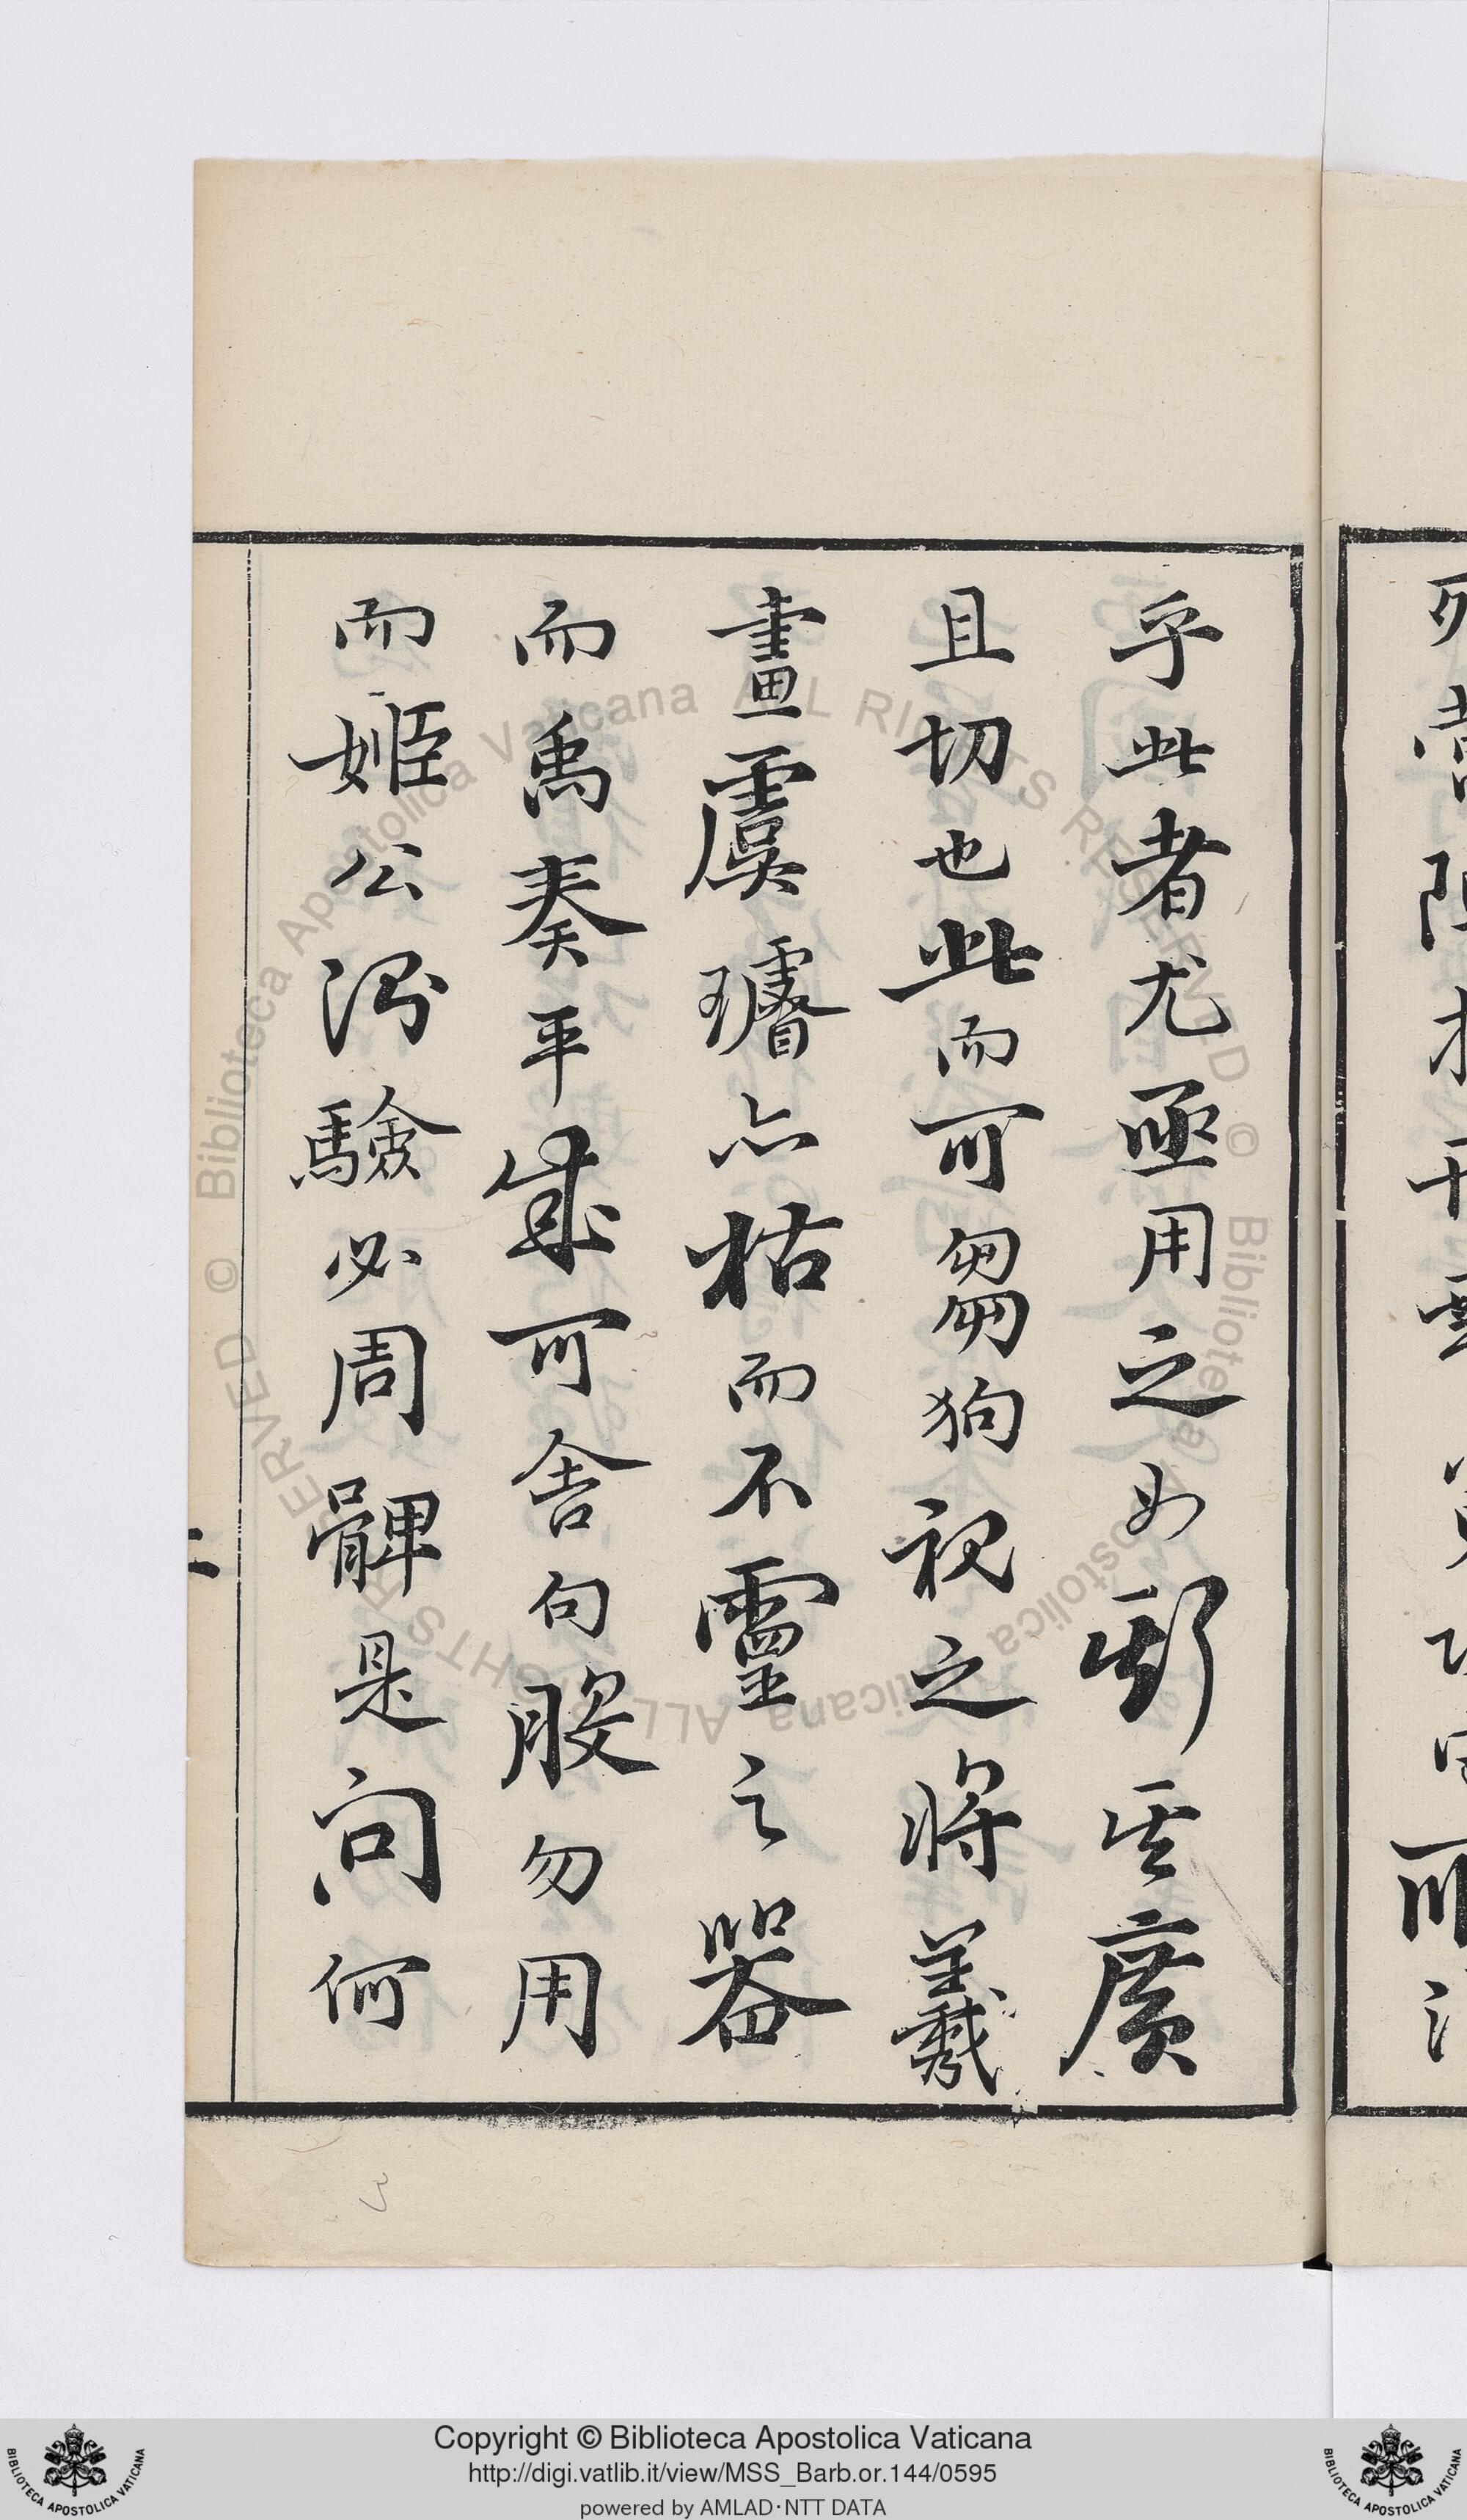 乎此者尤亟用之如𨟎其廣
且切也此而可芻狗視之將羲
畫虞璿亦枯而不靈之器
而禹奏平成可舍句股勿用
而姬公測驗必周髀是問何
二
Copyright © Biblioteca Apostolica Vaticana
http://digi.vatlib.it/view/MSS_Barb.or.144/0595
powered by AMLAD·NTT DATA